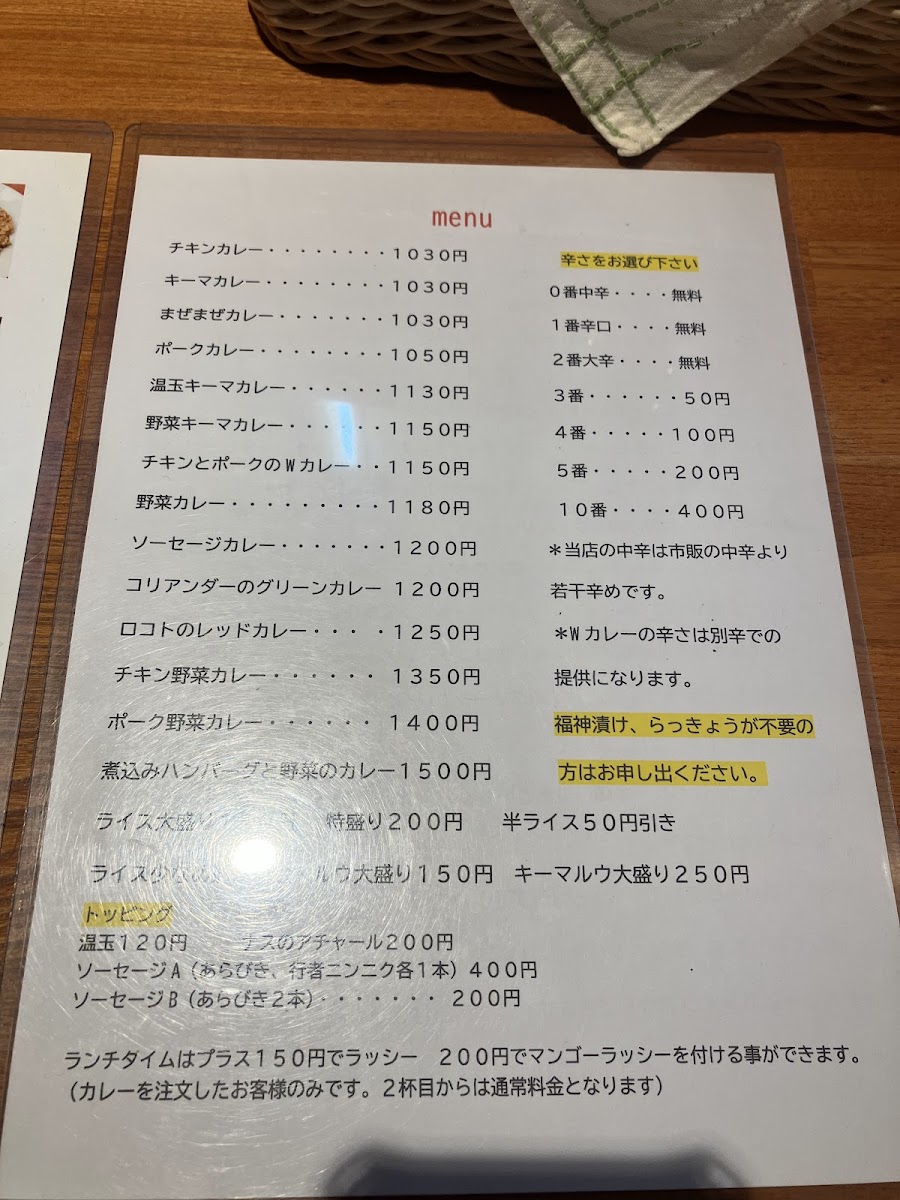 menu
チキンカレー・・・・・・・・1030円
キーマカレー・・・・・・・・1030円
まぜまぜカレー・・・・・・・1030円
ポークカレー・・・・・・・・1050円
温玉キーマカレー・・・・・・1130円
野菜キーマカレー・・・・・・1150円
チキンとポークのWカレー・・1150円
野菜カレー・・・・・・・・・1180円
ソーセージカレー・・・・・・・1200円
コリアンダーのグリーンカレー 1200円
ロコトのレッドカレー・・・ ・1250円
チキン野菜カレー・・・・・・ 1350円
ポーク野菜カレー・・・・・・ 1400円
煮込みハンバーグと野菜のカレー1500円
辛さをお選び下さい
0番中辛・・・・無料
1番辛口・・・・無料
2番大辛・・・・無料
3番・・・・・・50円
4番・・・・・100円
5番・・・・・200円
10番・・・・400円
*当店の中辛は市販の中辛より
若干辛めです。
*Wカレーの辛さは別辛での
提供になります。
福神漬け、らっきょうが不要の
方はお申し出ください。
ライス大盛り 特盛り200円 半ライス50円引き
ライス少なめ ルウ大盛り150円 キーマルウ大盛り250円
トッピング
温玉120円 ナスのアチャール200円
ソーセージA(あらびき、行者ニンニク各1本)400円
ソーセージB(あらびき2本)・・・・・・・ 200円
ランチタイムはプラス150円でラッシー 200円でマンゴーラッシーを付ける事ができます。
(カレーを注文したお客様のみです。2杯目からは通常料金となります)